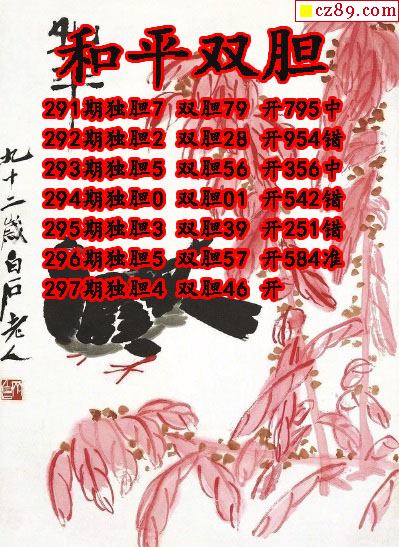 cz89.com
和平双胆
291期独胆7 双胆79 开795中
292期独胆2 双胆28 开954错
293期独胆5 双胆56 开356中
294期独胆0 双胆01 开542错
295期独胆3 双胆39 开251错
296期独胆5 双胆57 开584准
297期独胆4 双胆46 开
九十二岁白石老人